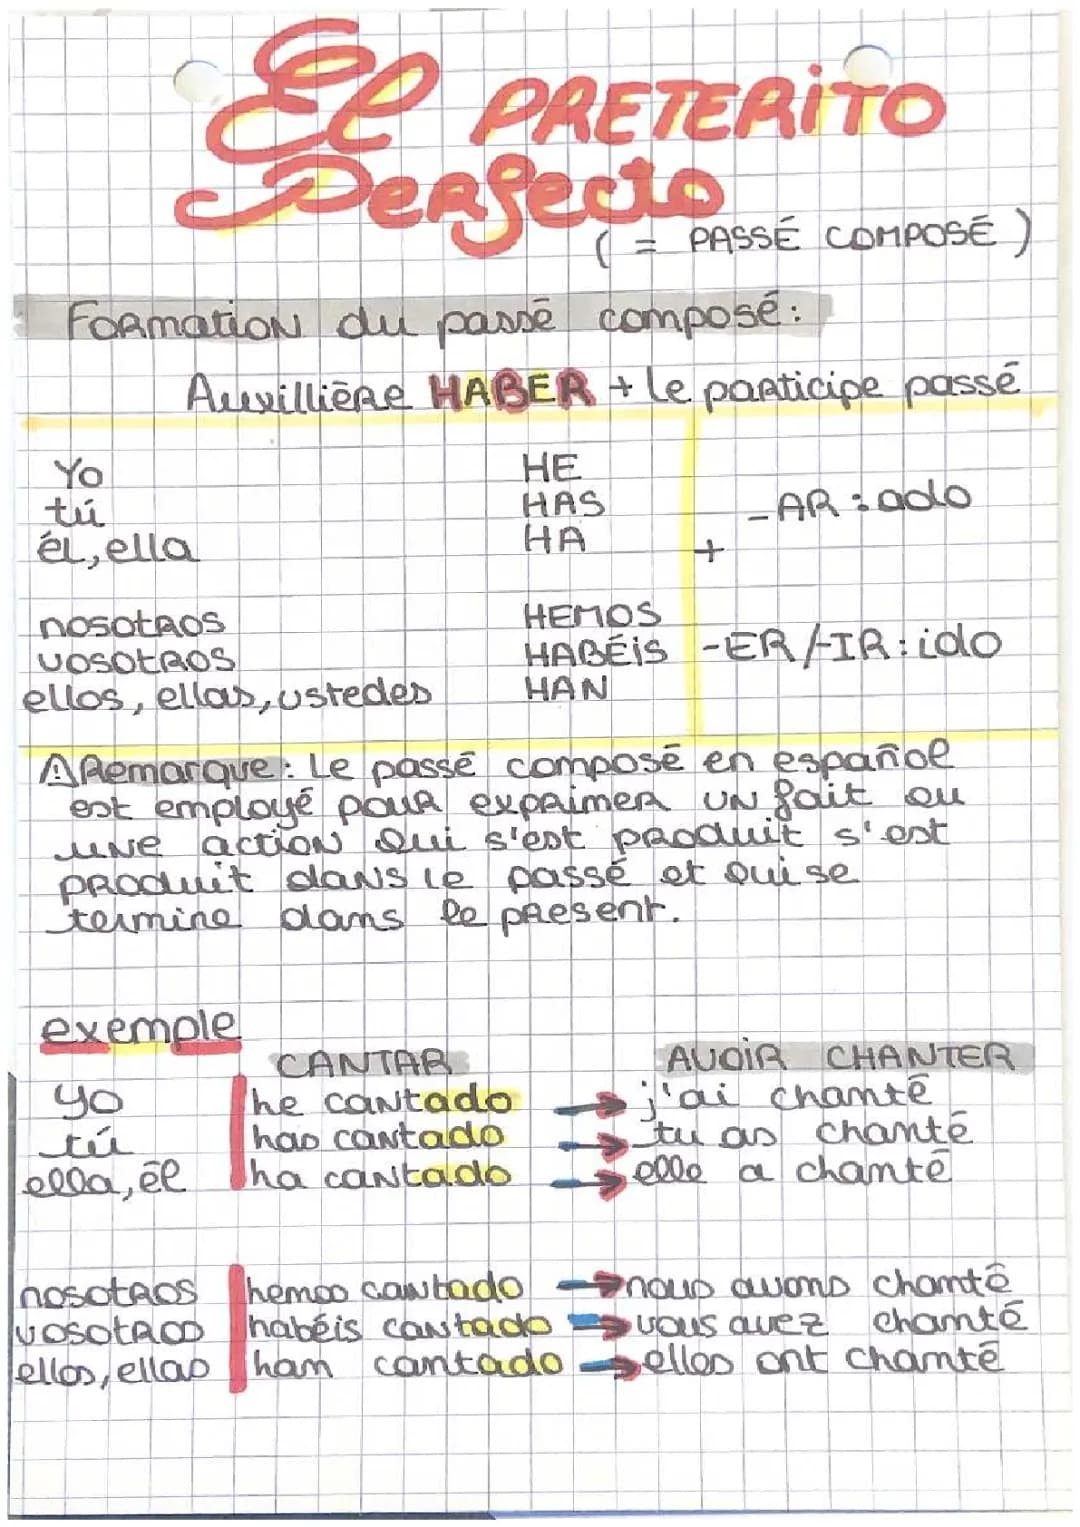 El PRETERITO
Perfecto
( = PASSÉ COMPOSÉ )
Formation du passé composé:
Auxillière HABER + le participe passé
Yo HE
tú HAS -AR : ado
él, ella HA +
nosotros HEMOS
vosotros HABÉIS -ER/-IR: ido
ellos, ellas, ustedes HAN
⚠ Remarque : Le passé composé en español
est employé pour exprimer un fait ou
une action qui s'est produit s'est
produit dans le passé et qui se
termine dans le present.
exemple
CANTAR AVOIR CHANTER
yo he cantado → j'ai chanté
tú has cantado → tu as chanté
ella, él ha cantado → elle a chanté
nosotros hemos cantado → nous avons chanté
vosotros habéis cantado → vous avez chanté
ellos, ellas han cantado → elles ont chanté